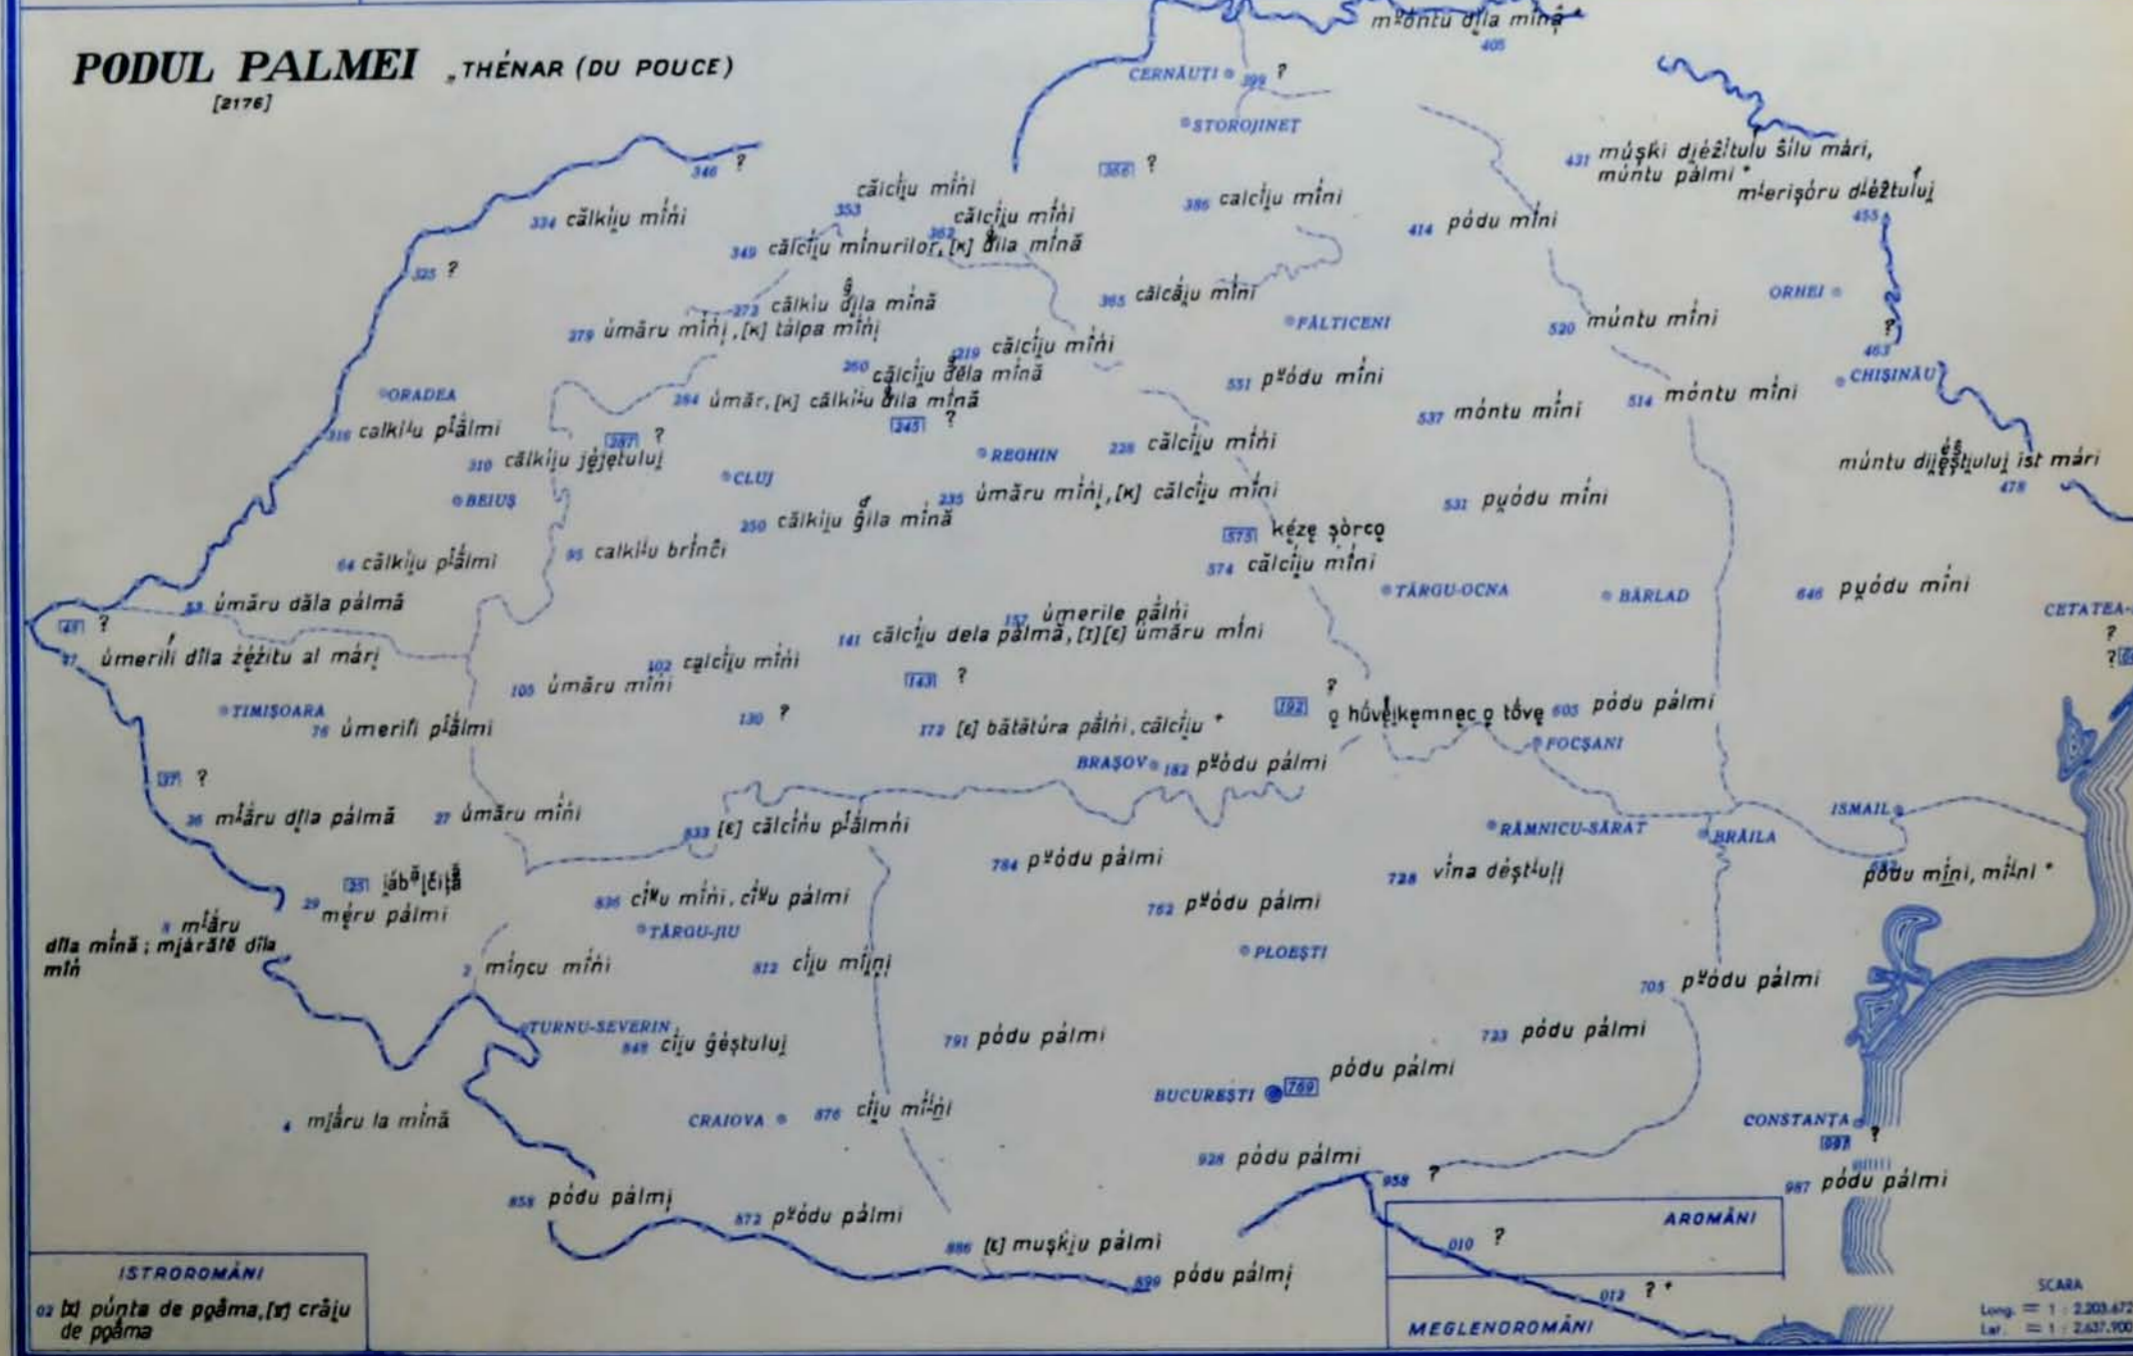 PODUL PALMEI „THÉNAR (DU POUCE)
[2176]
405
CERNĂUȚI 399 ?
STOROJINEȚ
346 ?
366 ?
431 múșḱi di̯éẑítulu ŝílu mári,
múntu pálmi *
455
334 călkíi̯u mîńi
353 călcîi̯u mîńi
362 călcîi̯u mîńi
386 calcîi̯u mîńi
414 pódu mîńi
349 călcîi̯u mînurilor, [κ] dila mînă
325 ?
273 călkíu dila mînă
365 călcâi̯u mîńi
ORHEI
379 úmăru mîńi, [κ] tálpa mîńi
FĂLTICENI
520 múntu mîńi
463 ?
219 călcîi̯u mîńi
260 călcîi̯u dĕla mînă
551 pᵘódu mîńi
CHIȘINĂU
ORADEA
284 úmăr, [κ] călkíᶤu dila mînă
537 móntu mîńi
514 móntu mîńi
316 calkíᶤu pᶤálmi
287 ?
245 ?
310 călkíi̯u jéjetului̯
REGHIN
228 călcîi̯u mîńi
CLUJ
478
BEIUȘ
235 úmăru mîńi, [κ] călcîi̯u mîńi
531 pu̯ódu mîńi
250 călkíi̯u ĝíla mînă
575 kéze șòrco̧
64 călkíi̯u pᶤálmi
95 calkíᶤu brînĉi
574 călcîi̯u mîńi
TÂRGU-OCNA
BÂRLAD
646 pu̯ódu mîńi
53 úmăru dăla pálmă
CETATEA-
?
?
48 ?
157 úmerile pálńi
141 călcîi̯u dela pálmă, [ɪ] [ε] úmăru mîńi
47 úmerili dîla źéźitu al mári̯
102 calcîi̯u mîńi
105 úmăru mîńi
143 ?
?
192 o̧ hűvei̯kemnec o̧ tőve
605 pódu pálmi
TIMIȘOARA
76 úmerili pᶤálmi
130 ?
172 [ε] bătătúra pálńi, călcîi̯u *
FOCȘANI
BRAȘOV 182 pᵘódu pálmi
37 ?
36 mᶤáru dila pálmă
27 úmăru mîńi
833 [ε] călcîńu pᶤálmńi
RÂMNICU-SĂRAT
BRĂILA
ISMAIL
784 pᵘódu pálmi
728 vîna déștᶤului̯
682 pódu mîni, mîᶤni *
25
29 méru pálmi
836 cîᵏu mîńi, cîᵏu pálmi
762 pᵘódu pálmi
8 mᶤáru
dîla mînă; mjárăle dîla
mîń
TÂRGU-JIU
PLOEȘTI
2 mîńcu mîńi
812 cîi̯u mîi̯ni
705 pᵘódu pálmi
TURNU-SEVERIN
848 cîi̯u ĝéștului̯
791 pódu pálmi
723 pódu pálmi
BUCUREȘTI 769 pódu pálmi
4 mi̯áru la mînă
CRAIOVA
876 cîi̯u mîᶤni
CONSTANȚA
?
928 pódu pálmi
958 ?
987 pódu pálmi
858 pódu pálmi̯
872 pᵘódu pálmi
AROMÂNI
886 [ε] mușḱi̯u pálmi
010 ?
899 pódu pálmi̯
ISTROROMÂNI
02 púnta de po̯áma, crăi̯u
de po̯áma
012 ? *
MEGLENOROMÂNI
SCARA
Long. = 1 : 2.203.672
Lat. = 1 : 2.637.900